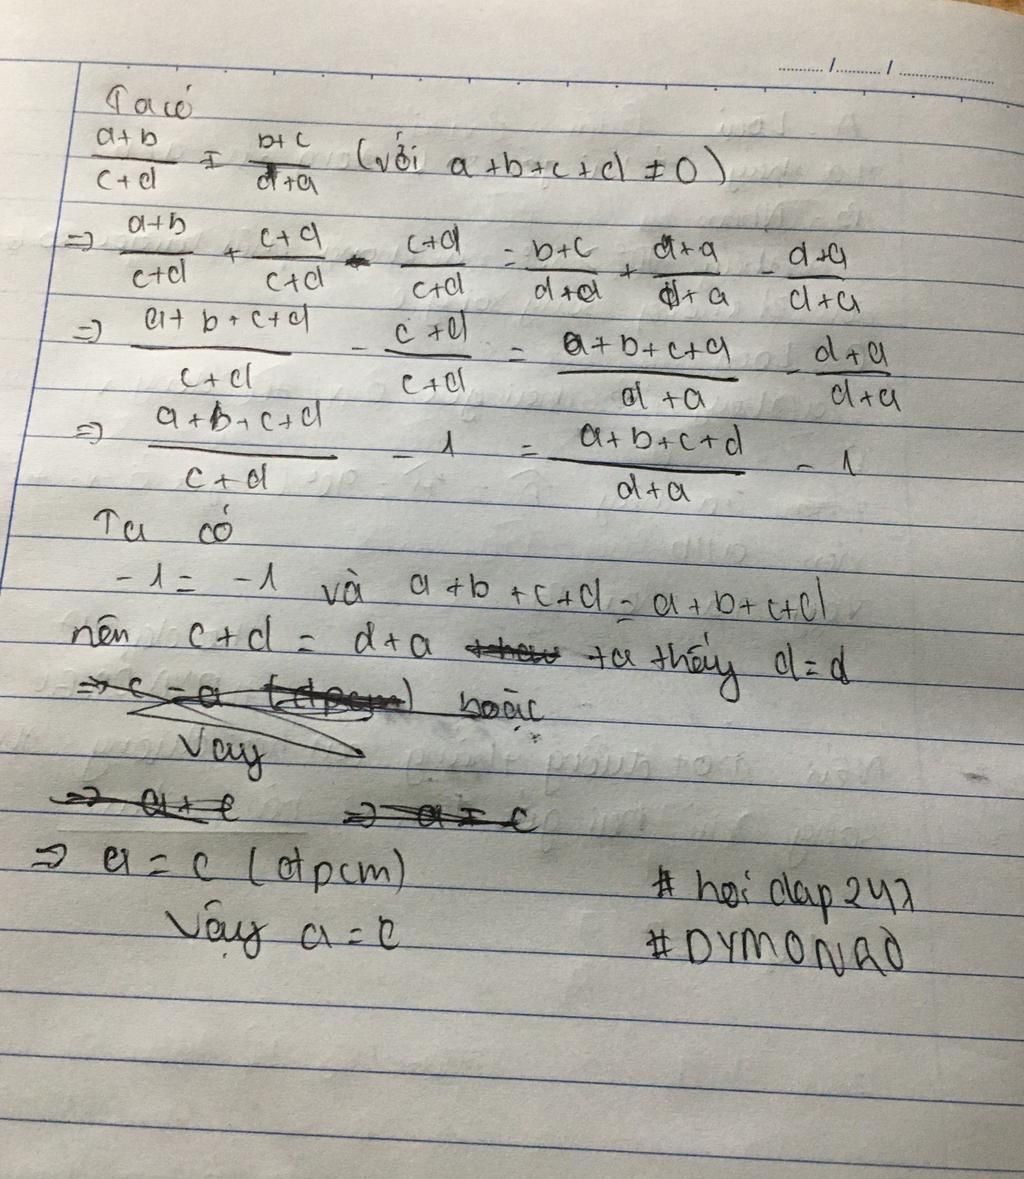 Ta có
a+b/c+d = b+c/d+a (với a+b+c+d ≠ 0)
=> a+b/c+d + c+d/c+d - c+d/c+d = b+c/d+a + d+a/d+a - d+a/d+a
=> a+b+c+d/c+d - c+d/c+d = a+b+c+d/d+a - d+a/d+a
=> a+b+c+d/c+d - 1 = a+b+c+d/d+a - 1
Ta có
-1 = -1 và a+b+c+d = a+b+c+d
nên c+d = d+a ta thấy d=d
=> c = a (đpcm) hoặc
Vay
=> a = c => a = c
=> a = c (đpcm)
Vậy a = c
# hoi dap 247
# DYMONRO